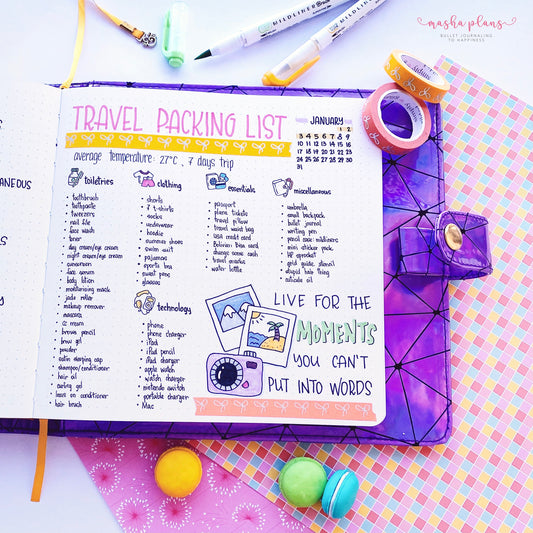 masha plans
BULLET JOURNALING
TO HAPPINESS
MILDLINER
TRAVEL PACKING LIST
JANUARY
1 2
3 4 5 6 7 8 9
10 11 12 13 14 15 16
17 18 19 20 21 22 23
24 25 26 27 28 29 30
31
average temperature: 27°C, 7 days trip
toiletries
toothbrush
toothpaste
tweezers
nail file
face wash
toner
day cream/eye cream
night cream/eye cream
sunscreen
face serum
body lotion
moisturizing mask
jade roller
makeup remover
mascara
cc cream
brows pencil
brow gel
powder
satin sleeping cap
shampoo/conditioner
hair oil
curling gel
leave on conditioner
hair brush
clothing
shorts
7 t-shirts
socks
underwear
hoodie
summer shoes
swim suit
pajamas
sports bra
sweat pens
glasses
technology
phone
phone charger
iPad
iPad pencil
iPad charger
apple watch
watch charger
nintendo switch
portable charger
Mac
essentials
passport
plane tickets
travel pillow
travel waist bag
usa credit card
change some cash
travel snacks
water bottle
miscellaneous
umbrella
small backpack
bullet journal
writing pen
pencil case: mildliners
mini sticker pack
HP sprocket
grid guide stencil
stupid hair thing
LIVE FOR THE
MOMENTS
YOU CAN'T
PUT INTO WORDS
ANEOUS